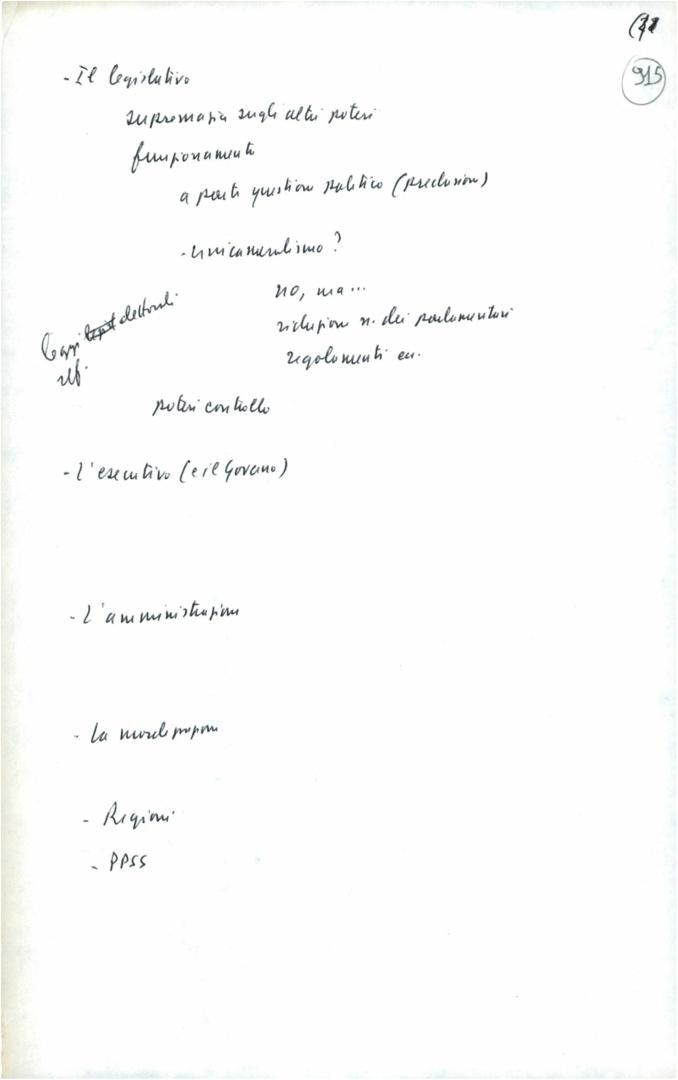 915
- Il legislativo
supremazia sugli altri poteri
funzionamento
a parte questione politica (preclusione)
- unicameralismo?
no, ma...
riduzione n. dei parlamentari
regolamenti ecc.
Leggi elettorali
ref.
poteri controllo
- l'esecutivo (e il Governo)
- L'amministrazione
- La
- Regioni
- PPSS